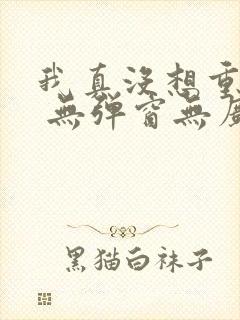 我真没想重
無彈窗無廣
黑猫白袜子